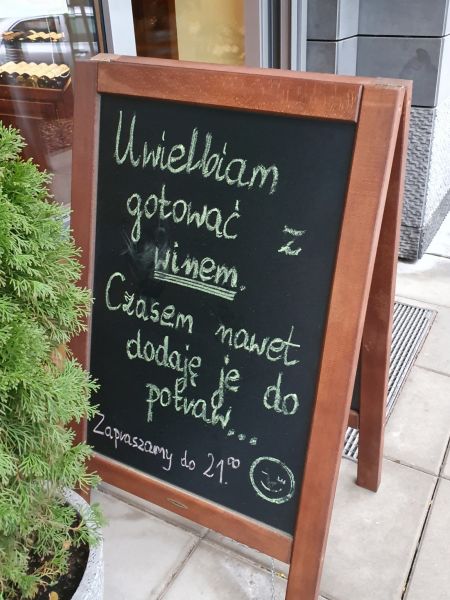 Uwielbiam
gotować z
winem.
Czasem nawet
dodaję je do
potraw...
Zapraszamy do 21.⁰⁰